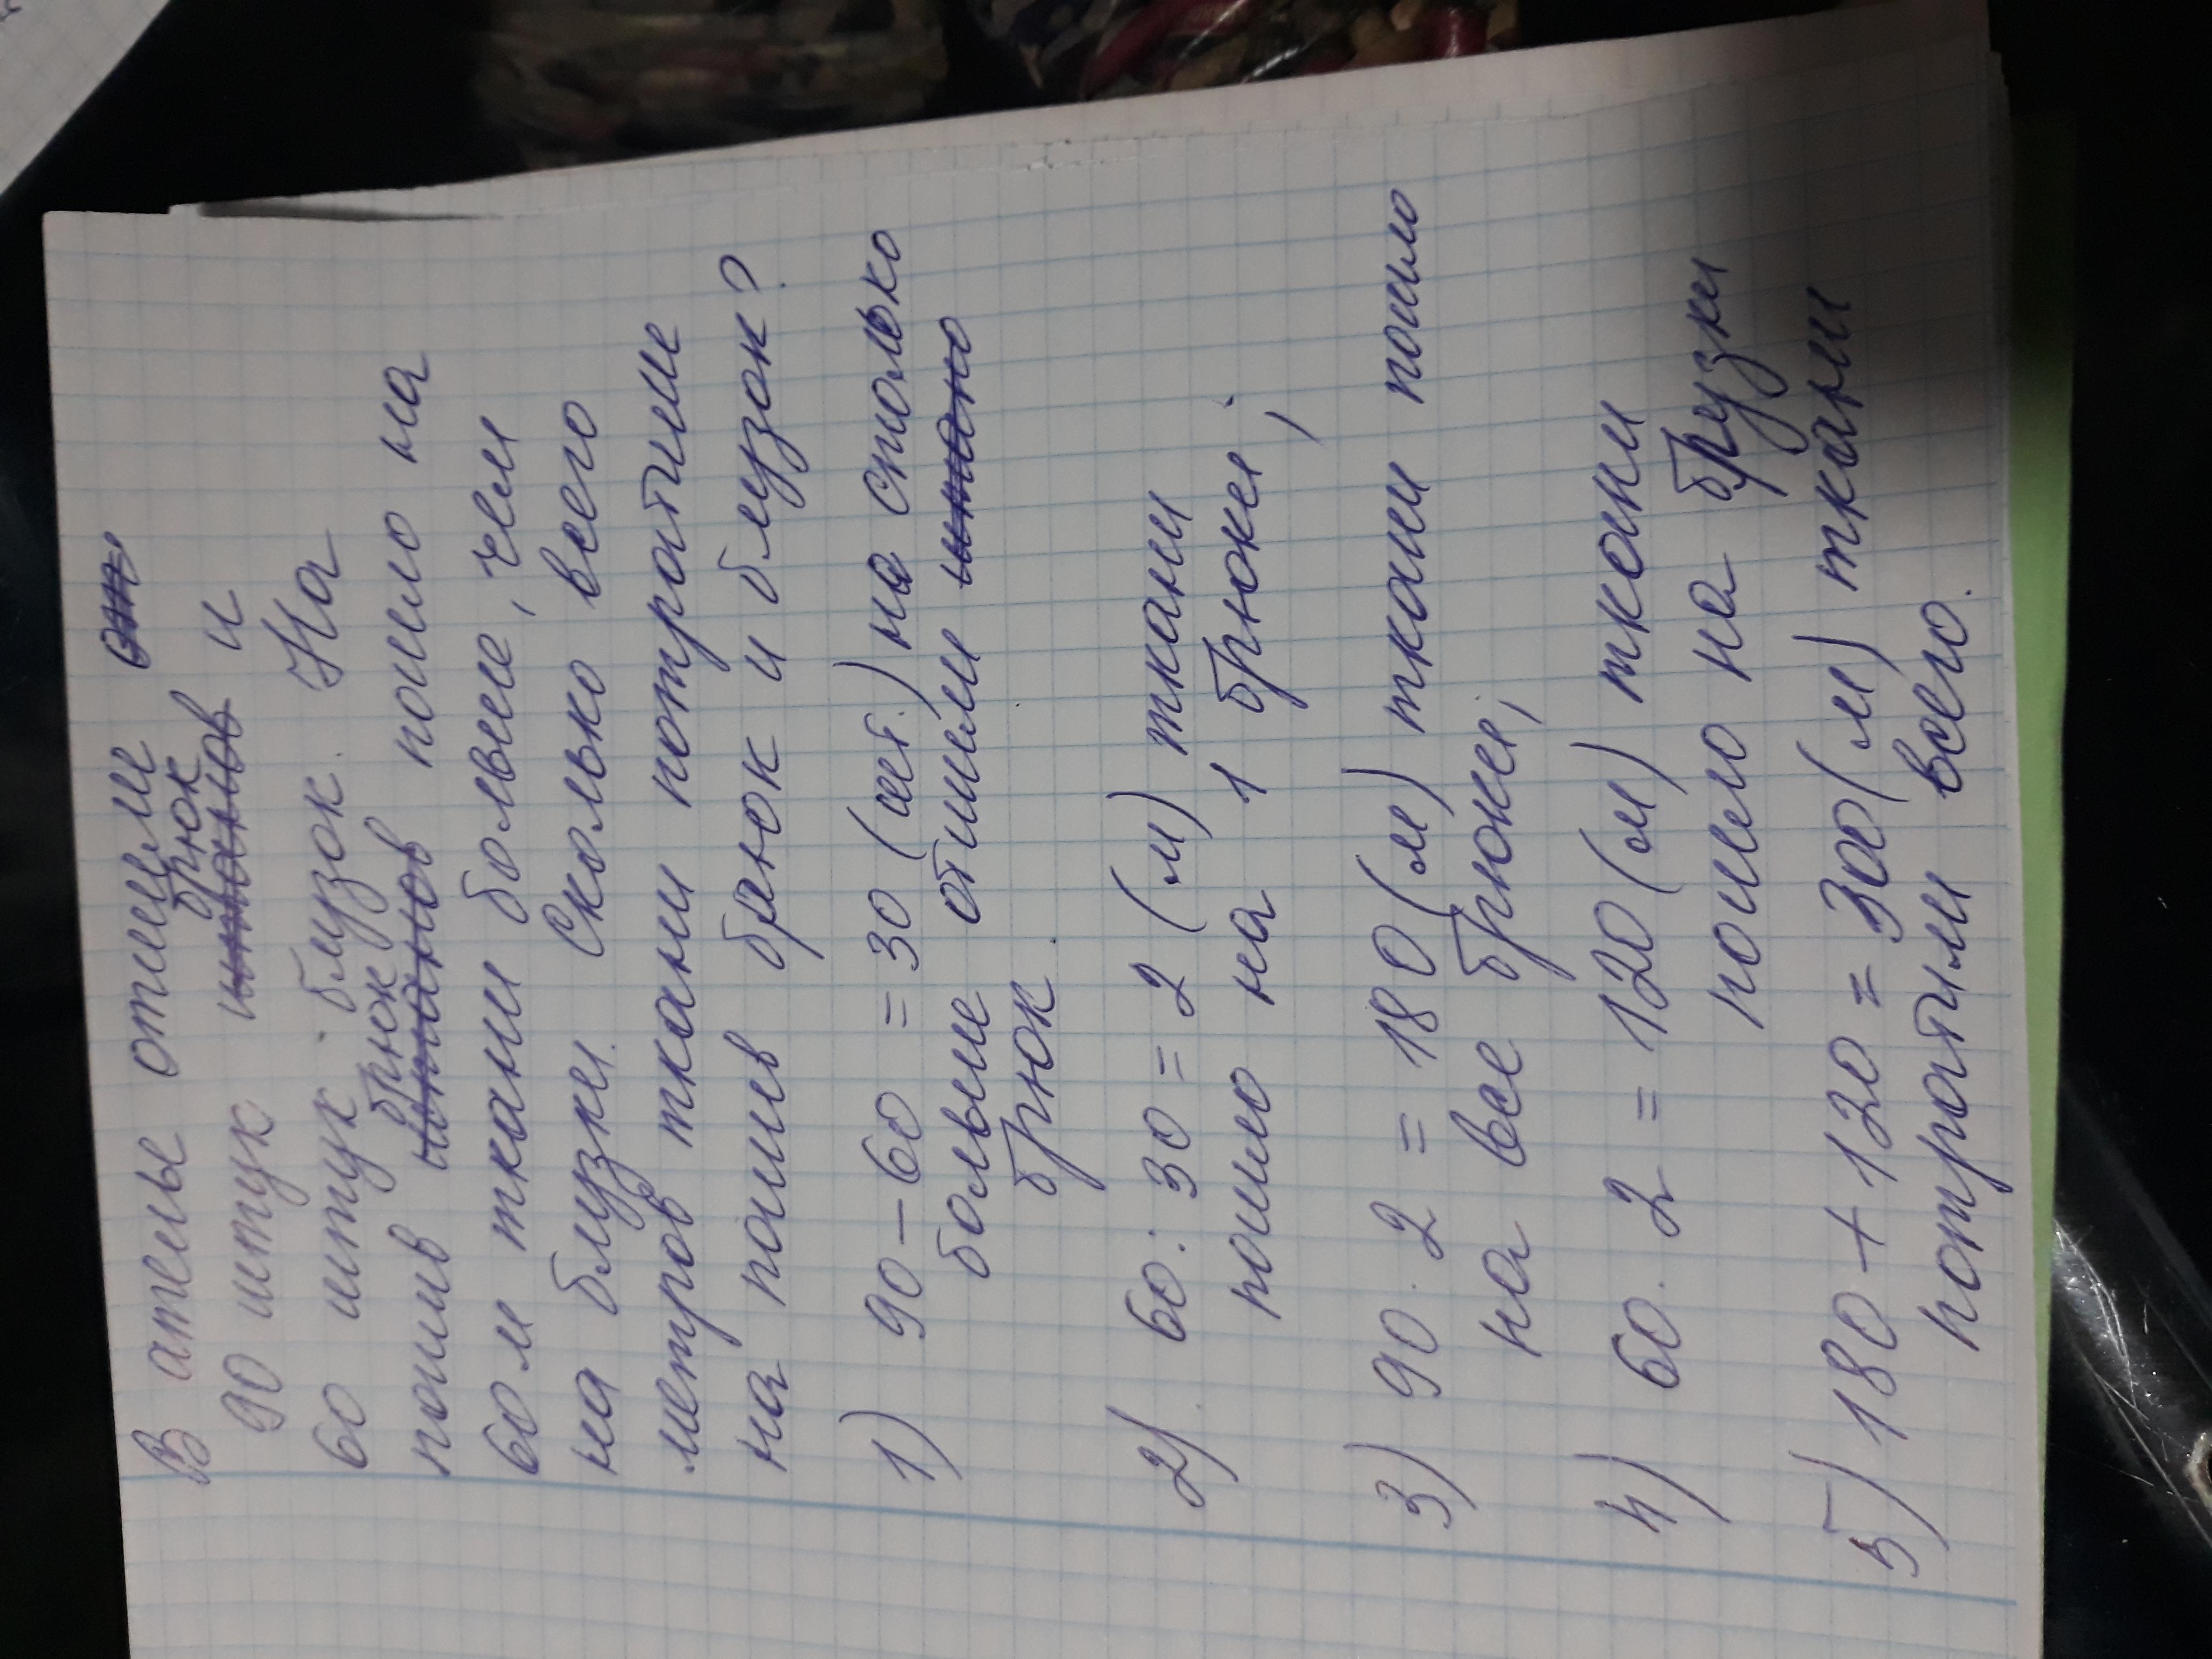 В ателье отшели
брюк
90 штук и
60 штук блузок. На
брюк
пошив пошло на
60 м ткани больше, чем
на блузки. Сколько всего
метров ткани потратили
на пошив брюк и блузок?
1) 90 - 60 = 30 (шт.) на столько
больше отшили
брюк.
2) 60 : 30 = 2 (м) ткани
пошло на 1 брюки;
3) 90 · 2 = 180 (м) ткани пошло
на все брюки;
4) 60 · 2 = 120 (м) ткани
пошло на брузки
5) 180 + 120 = 300 (м) ткани
потратили всего.